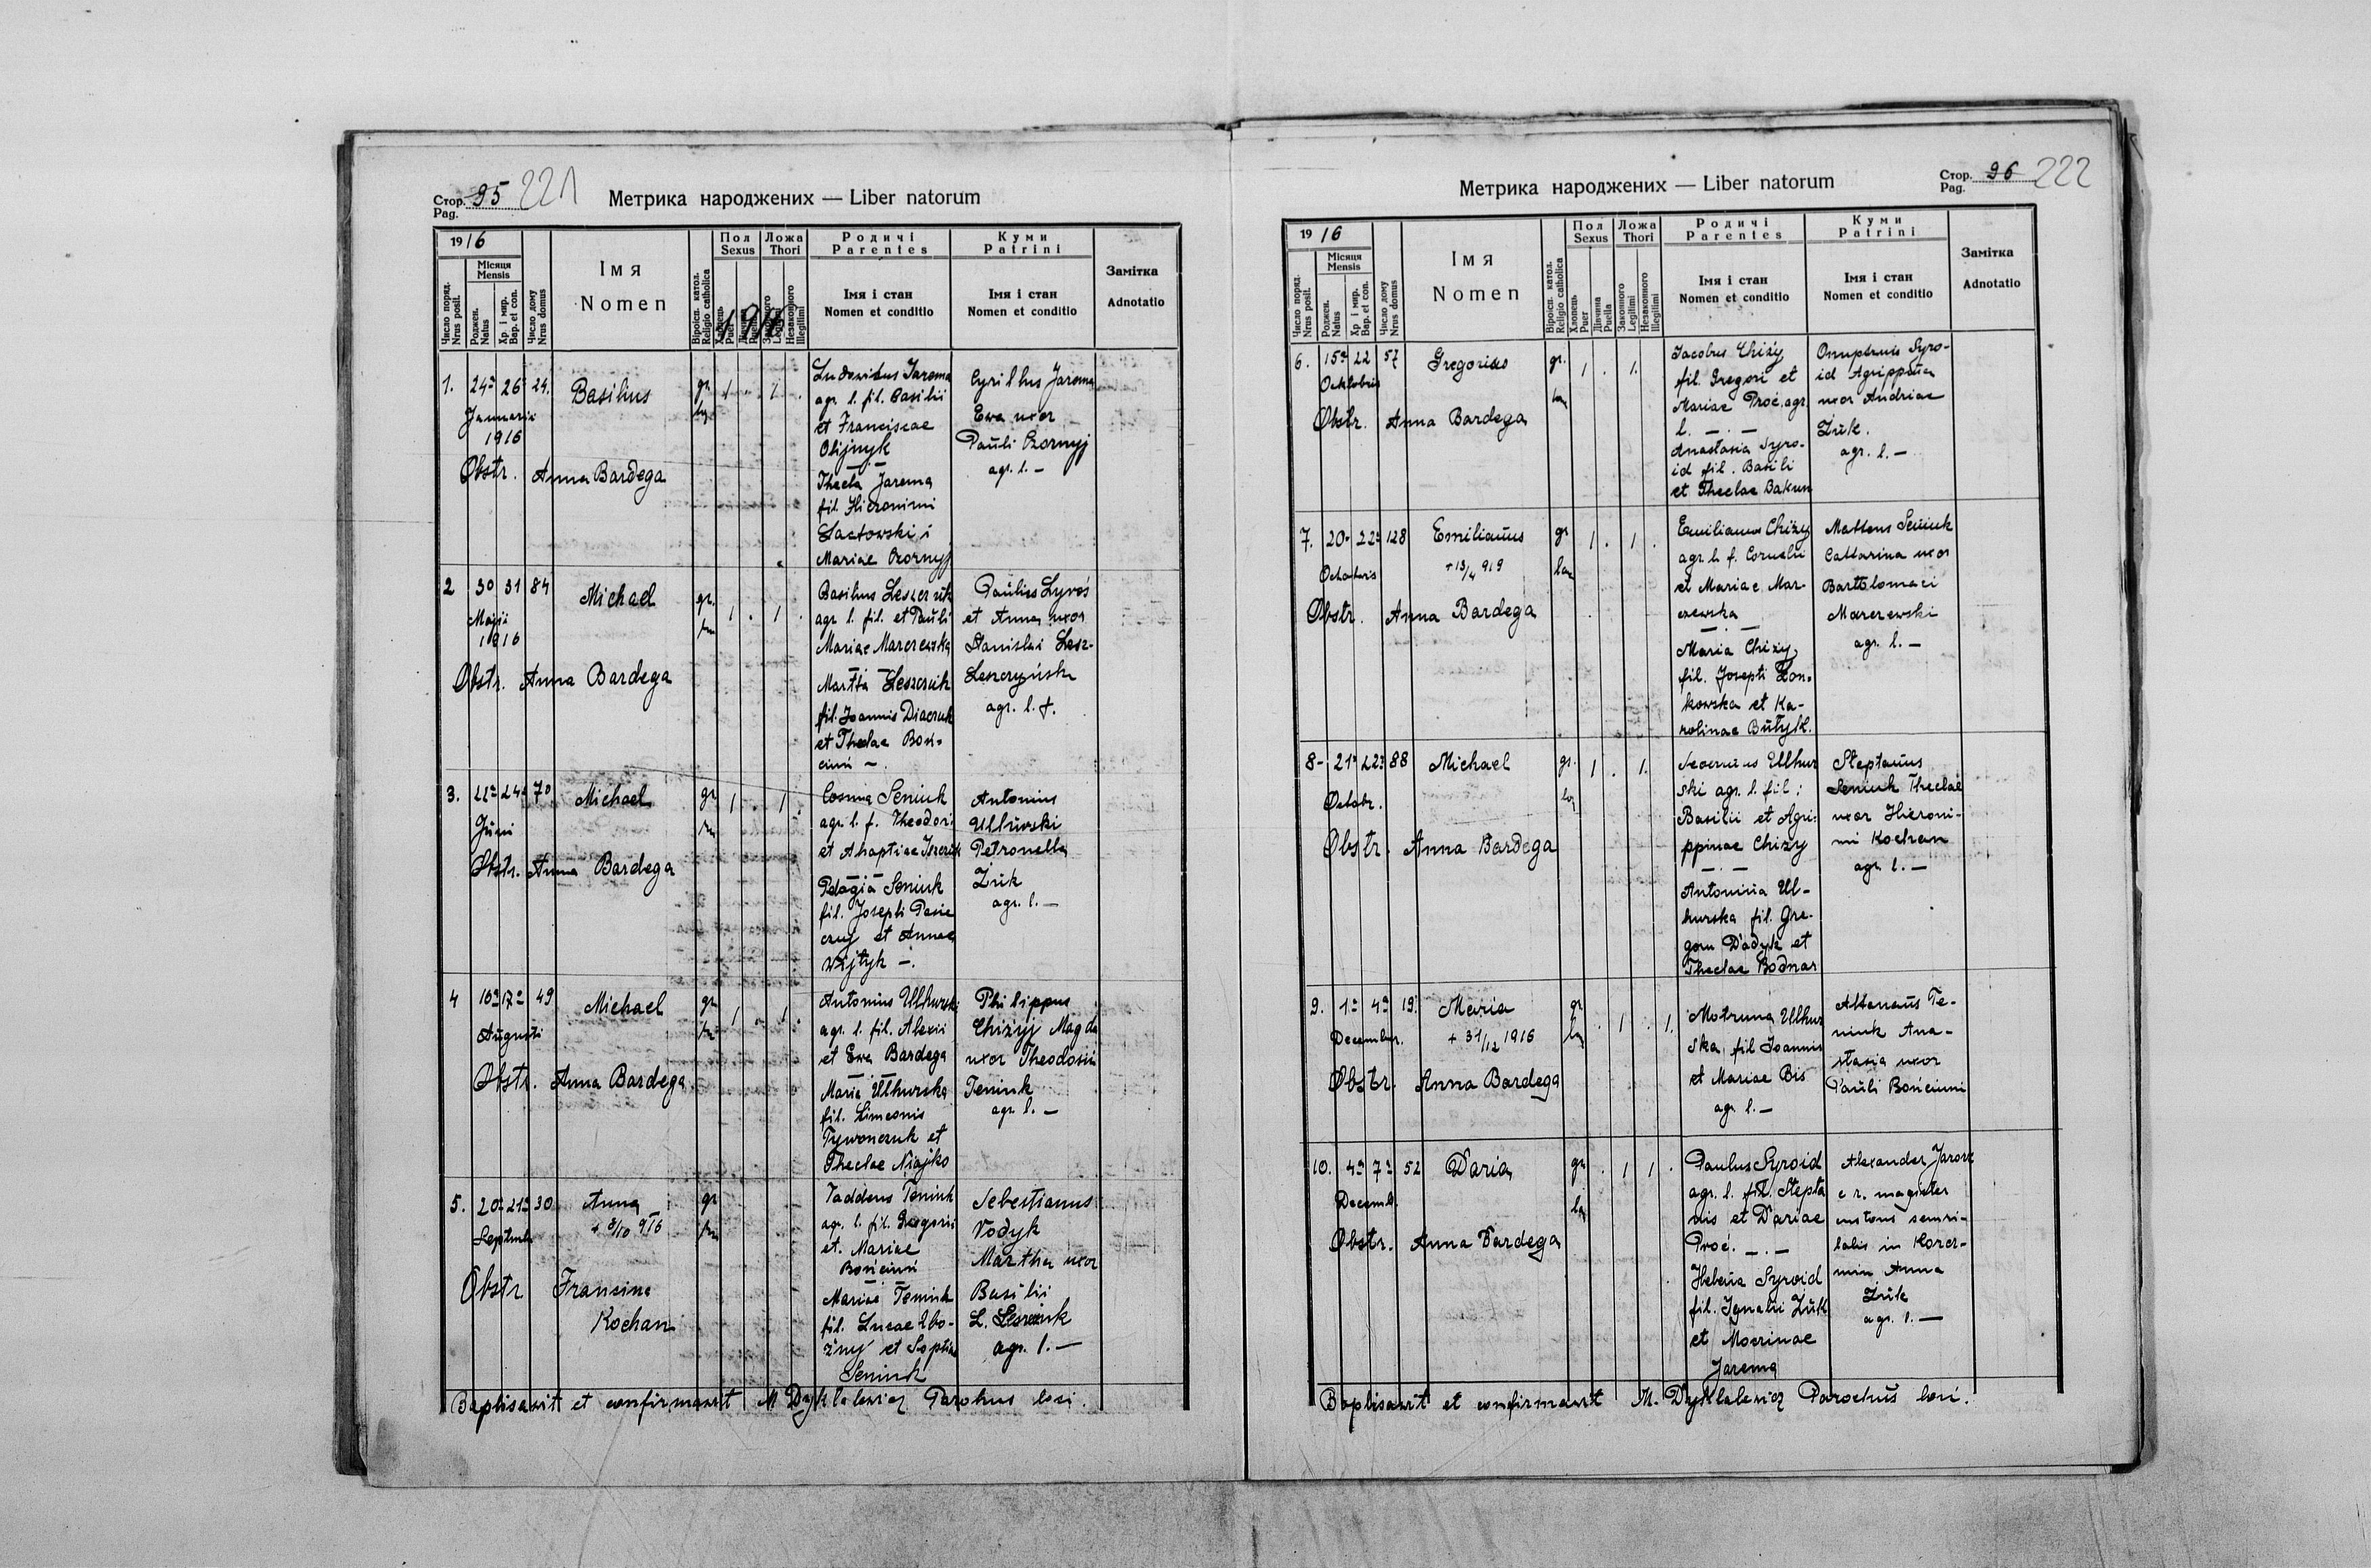 Стор. 95 221
Pag.
Метрика народжених — Liber natorum
1916
Місяця
Mensis
Число поряд.
Nrus posit.
Роджен.
Natus
Хр. і мир.
Bap. et con.
Число дому
Nrus domus
Імя
Nomen
Віроісп. катол.
Religio catholica
Пол
Sexus
Хлопець
Puer
Дівчина
Ложа
Thori
Законного
Незаконного
Illegitimi
Родичі
Parentes
Імя і стан
Nomen et conditio
Куми
Patrini
Імя і стан
Nomen et conditio
Замітка
Adnotatio
1. 24 26 29. Basilius gr. 1 . 1 .
Januarii
1916
Obstr. Anna Bardega
Ludovicus Jarema
agr. l. fil. Basilii
et Franciscae
Olijnyk
Thecla Jarema
fil. Hieronimi
Mariae Czornyj
Cyrillus Jarema
Ewa uxor
Pauli Czornyj
agr. l. —
2 30 31 84 Michael gr. 1 . 1 .
Maji
1916
Obstr. Anna Bardega
Basilius Leszczuk
agr. l. fil. et Pauli
Mariae Marczewska
Martha Leszczuk
fil. Joannis Diaczuk
et Theclae Boń-
ciuni —.
Paulus Syroś
et Anna uxor
Stanislai Lesz-
Leszczyńsk
agr. l. +.
3. 22 24 70 Michael gr 1 . 1 .
Juni
Obstr. Anna Bardega
Cosma Seniuk
agr. l. f. Theodori
et Ahaptiae
Pelagia Seniuk
fil. Josephi Pasie
czny et Annae
Wijtyk —.
Antonius
Ulhurski
Petronella
Żuk
agr. l. —
4 16 17 49 Michael gr 1 . 1 .
Augusti
Obstr. Anna Bardega
Antonius Ulhurski
agr. l. fil. Alexii
et Ewa Bardega
Maria Ulhurska
fil. Simeonis
Tywonczuk et
Theclae Niajko
Philippus
Chiżyj Magda
uxor Theodosii
Teniuk
agr. l. —
5. 20 21 30 Anna gr
Septemb + 3/10 916
Obstr Francisca
Kochan
Taddeus Teniuk
agr. l. fil. Gregorii
et Mariae
Bońciuni
Mariae Teniuk
fil. Lucae Ubo-
żny et Sophiae
Seniuk
Sebestianus
Vodyk
Martha uxor
Basilii
L. Leszczuk
agr. l. —
Baptisavit et confirmavit M Parohus loci.
Стор. 96 222
Pag.
Метрика народжених — Liber natorum
1916
Місяця
Mensis
Число поряд.
Nrus posit.
Роджен.
Natus
Хр. і мир.
Bap. et con.
Число дому
Nrus domus
Імя
Nomen
Віроісп. катол.
Religio catholica
Пол
Sexus
Хлопець
Puer
Дівчина
Puella
Ложа
Thori
Законного
Legitimi
Незаконного
Illegitimi
Родичі
Parentes
Імя і стан
Nomen et conditio
Куми
Patrini
Імя і стан
Nomen et conditio
Замітка
Adnotatio
6. 15 22 57 Gregorius gr. 1 . 1.
Octobris
Obstr. Anna Bardega
Jacobus Chiży
fil. Gregori et
Mariae Proć. agr.
l. —.—
Anastasia Syro-
id fil. Basili
et Theclae Bakun
Onuphrius Syro-
id Agrippina
uxor Andriae
Żuk.
agr. l. —
7. 20 22 128 Emilianus gr 1 . 1 .
Octobris + 13/4 919
Obstr. Anna Bardega
Emilianus Chiży
agr. l. f. Cornelii
et Mariae Mar-
czewska
Maria Chiży
fil. Josephi Zon-
kowska et Ka-
rolinae Butyk.
Matteus Seniuk
Cattarina uxor
Bartolomaei
Marczewski
agr. l. —
8- 21 22 88 Michael gr. 1 . 1.
Octobr.
Obstr. Anna Bardega
Ulhur
ski agr. l. fil:
Basilii et Agri-
ppinae Chiży
Antonina Ul-
hurska fil. Gre-
gorii Dadyk et
Theclae Bodnar
Stephanus
Seniuk Theclae
uxor Hieroni-
mi Kochan
agr. l. —
9. 1 4 19. Maria gr . 1 . 1.
December. + 31/12 1916
Obstr. Anna Bardega
Motruna Ulhur
ska, fil Joannis
et Mariae Bis
agr. l. —
Attanaus Te-
niuk Ana-
stasia uxor
Pauli Bońciuni
10. 4 7 52 Daria gr . 1 1 .
Decemb.
Obstr. Anna Bardega
Paulus Syroid
agr. l. fil. Stepha
nis et Dariae
Proć. —.—
Helena Syroid
fil. Ignatii Żuk
et Mocrinae
Jarema
Alexander
c r. magister
in Korcz-
min Anna
Żuk
agr. l. —
Baptisavit et confirmavit M. Parochus loci.